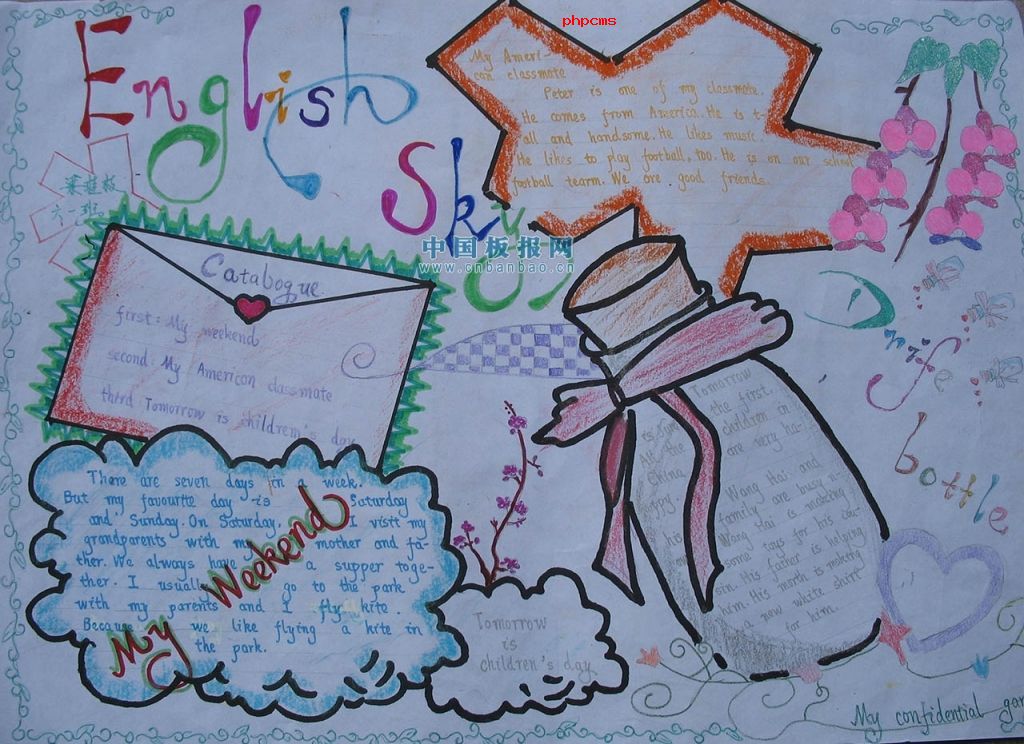 phpcms
English
Sky
六一班
中国板报网
www.cnbanbao.cn
My Ameri-
can classmate
Peter is one of my classmate.
He comes from America. He is t-
all and handsome. He likes music.
He likes to play football, too. He is on our school
football tearm. We are good friends.
Catabogue
first: My weekend
second: My American classmate
third Tomorrow is children's day
Drife
bottle
There are seven days in a week.
But my favourtte day is Saturday
and Sunday. On Saturday. I visit my
grandparents with my mother and fa-
ther. We always have a supper toge-
ther. I usually go to the park
with my parents and I fly kite.
Because we like flying a kite in
the park.
My Weekend
Tomorrow
is
children's day
Tomorrow
is Jun the first.
All the children in
China are very ha-
ppy.
Wang Hai and
his family are busy
Wang Hai is makeing
some toys for his cou-
sin. His father is helping
him. His month is making
a new white shirt
for him.
My confidential gar